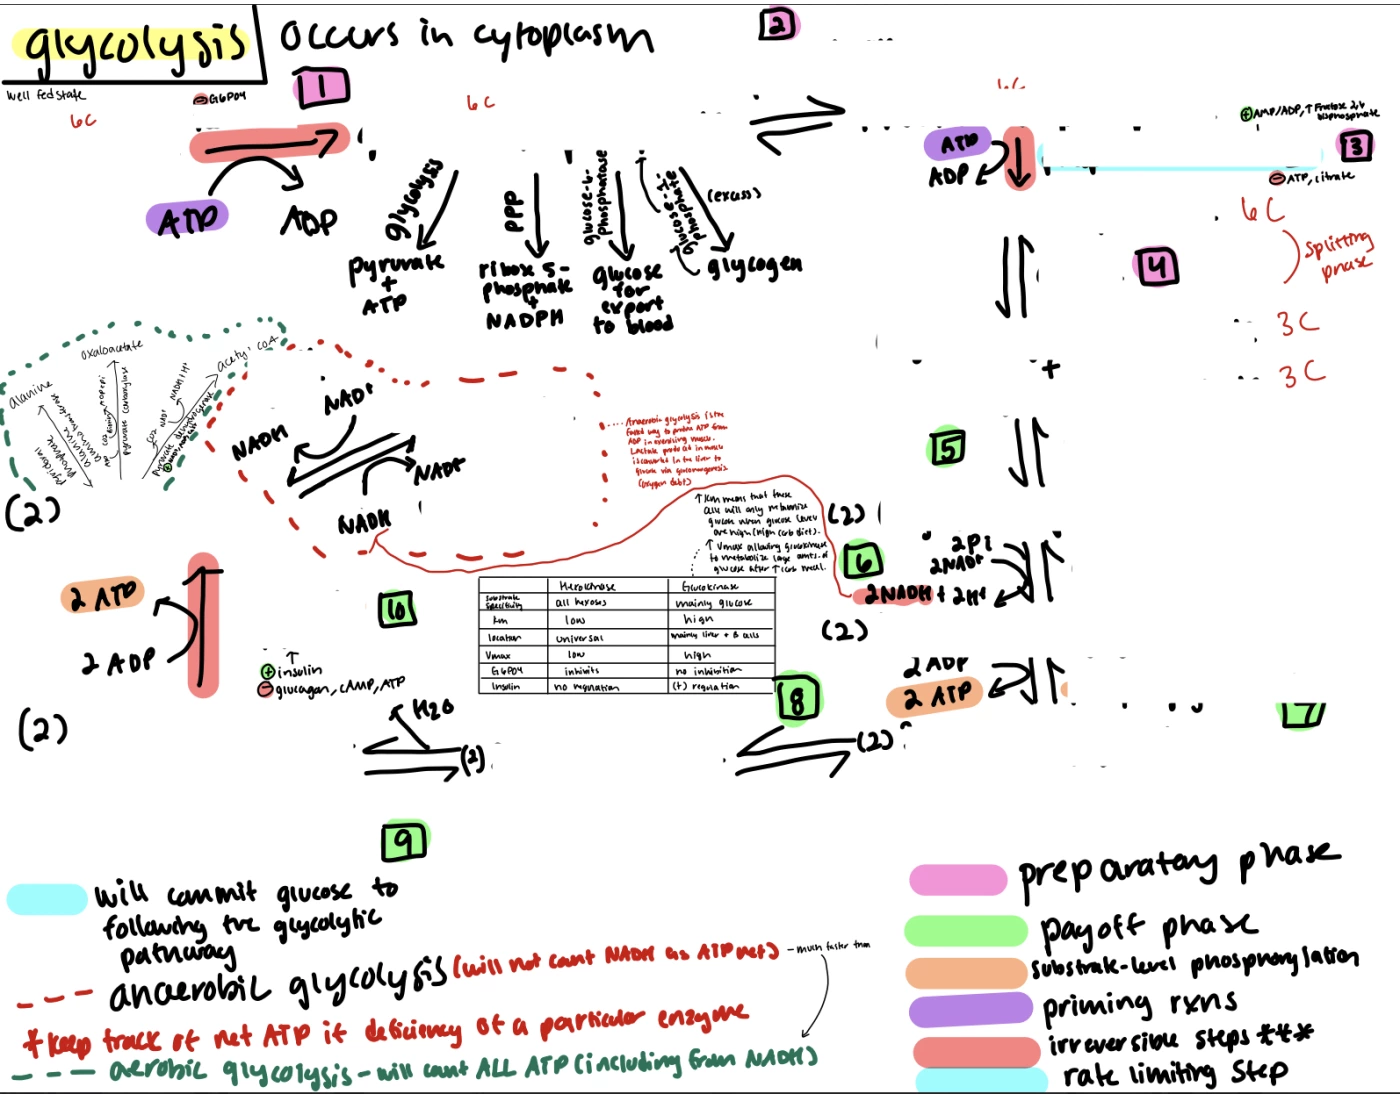 glycolysis
occurs in cytoplasm
2
well fed state
⊖ G6PO4
1
6C
6C
6C
⊕ AMP/ADP, ↑ Fructose 2,6
bisphosphate
3
ATP
ADP
⊖ ATP, citrate
ATP
ADP
glycolysis
PPP
glucose-6-
phosphatase
glucose-1-
phosphate
(excess)
pyruvate
+
ATP
ribose 5-
phosphate
+
NADPH
glucose
for
export
to blood
glycogen
6C
splitting
phase
4
3C
3C
+
oxaloacetate
acetyl CoA
alanine
pyruvate carboxylase
CO2
biotin
ADP+Pi
alanine
aminotransferase
pyridoxal
phosphate
CO2
NAD+
NADH/H+
pyruvate dehydrogenase
NAD+
NADH
NAD+
NADH
Anaerobic glycolysis is the
fastest way to produce ATP from
ADP in exercising muscle.
Lactate produced in muscle
is converted in the liver to
glucose via gluconeogenesis
(oxygen debt)
5
(2)
↑ Km means that these
cells will only metabolize
glucose when glucose levels
are high (high carb diet).
↑ Vmax allowing glucokinase
to metabolize large amts. of
glucose after ↑ carb meal.
(2)
6
2Pi
2NAD+
2NADH + 2H+
(2)
2 ATP
2 ADP
10
Hexokinase Glucokinase
Substrate
Specificity all hexoses mainly glucose
Km low high
location universal mainly liver + B cells
Vmax low high
G6PO4 inhibits no inhibition
Insulin no regulation (+) regulation
↑
⊕ insulin
⊖ glucagon, cAMP, ATP
2 ADP
2 ATP
8
7
(2)
H2O
(2)
(2)
9
will commit glucose to
following the glycolytic
pathway
anaerobic glycolysis (will not count NADH as ATP net) - much faster than
*keep track of net ATP if deficiency of a particular enzyme
aerobic glycolysis - will count ALL ATP (including from NADH)
preparatory phase
payoff phase
substrate-level phosphorylation
priming rxns
irreversible steps ***
rate limiting step